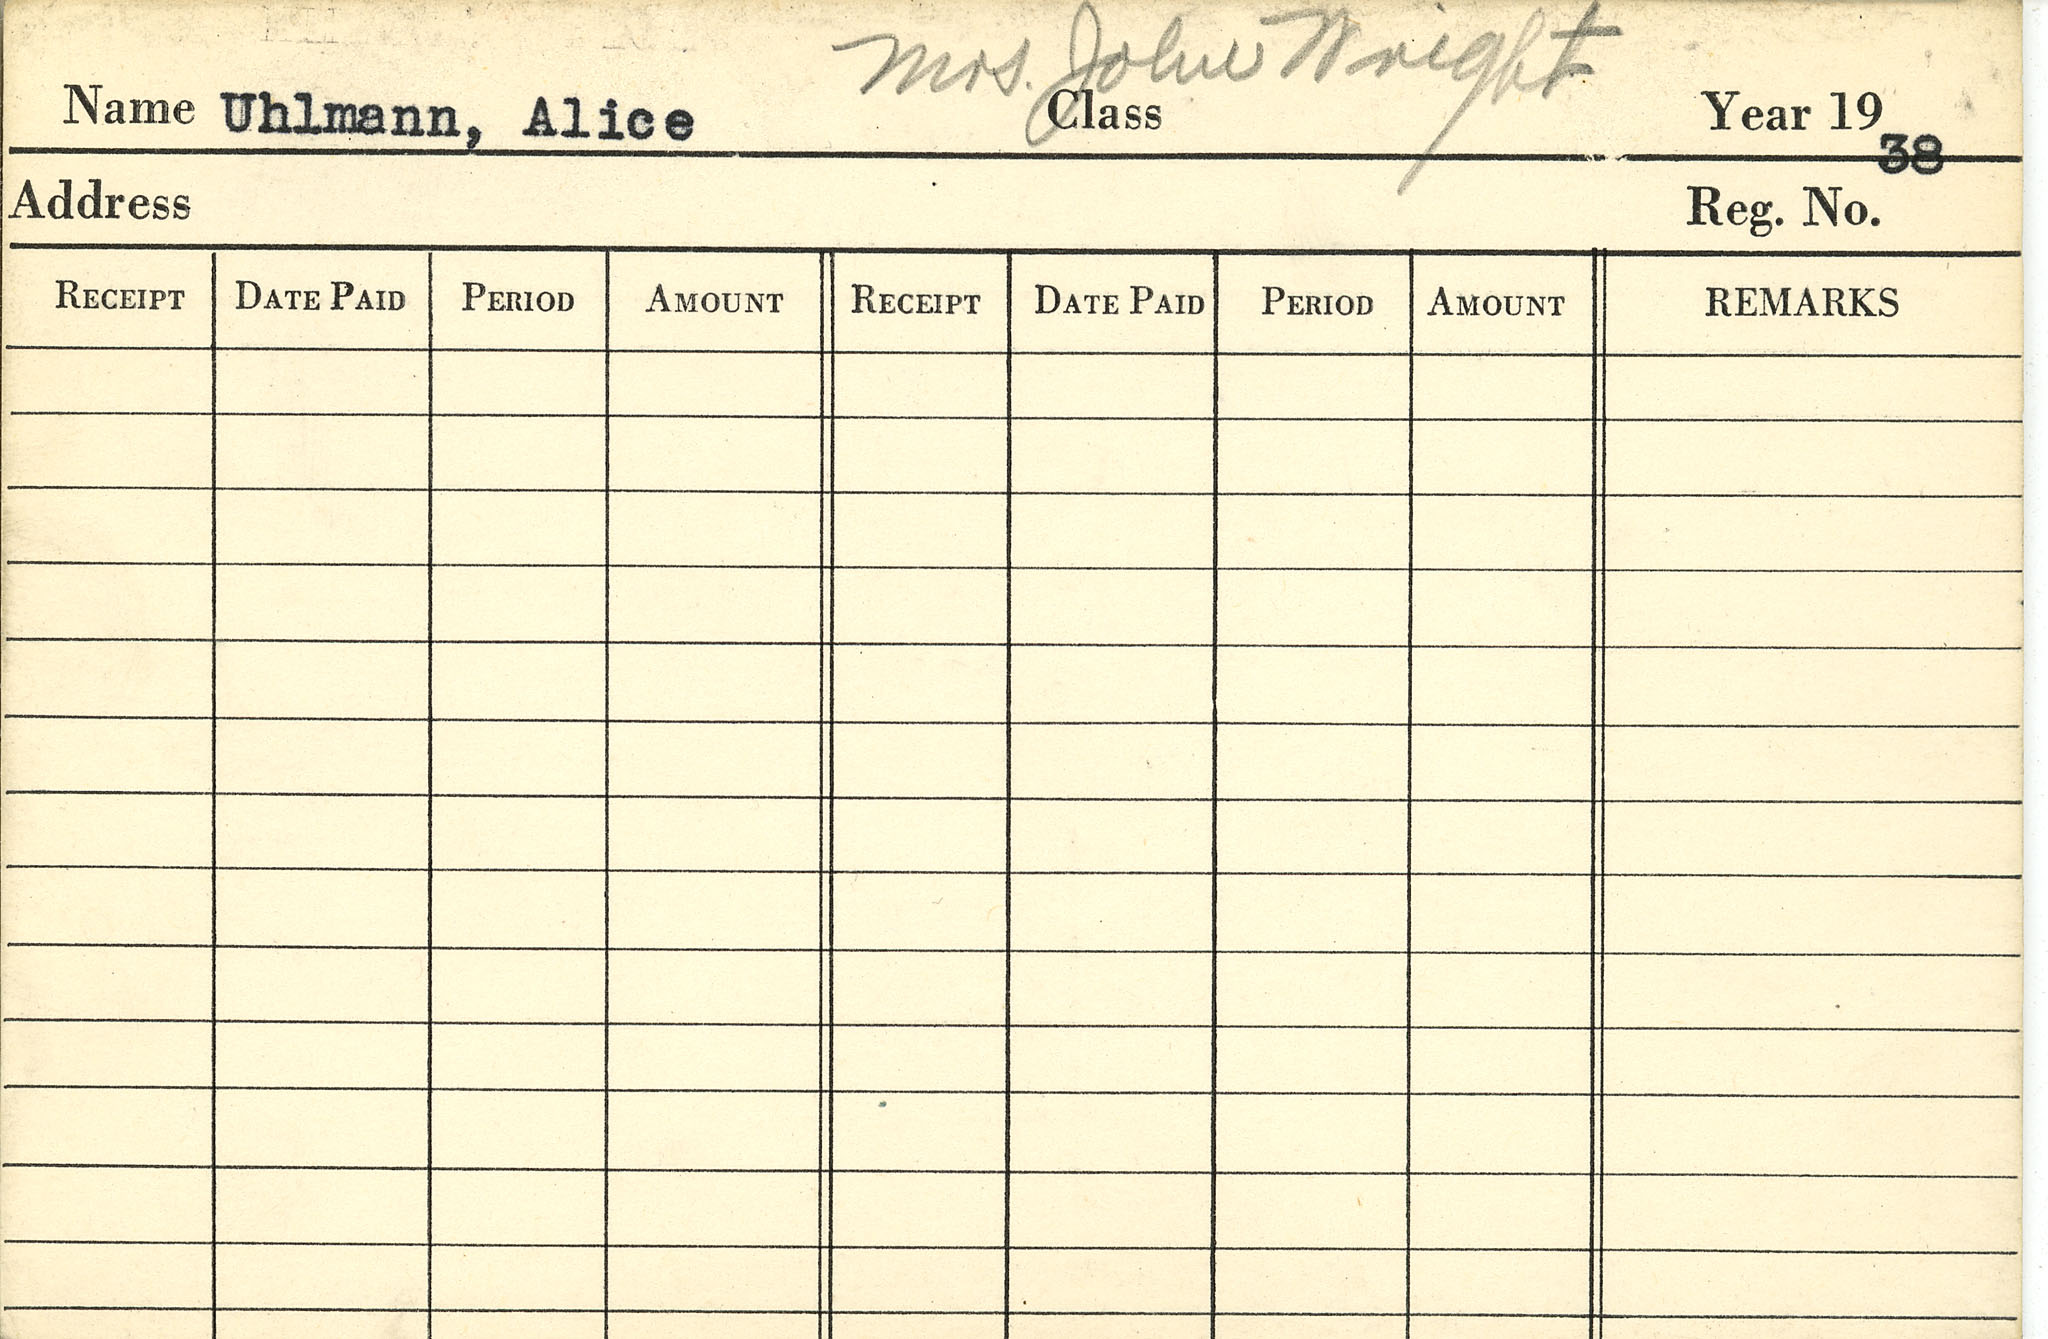 Mrs. John Wright
Name Uhlmann, Alice Class Year 19 38
Address Reg. No.
RECEIPT DATE PAID PERIOD AMOUNT RECEIPT DATE PAID PERIOD AMOUNT REMARKS